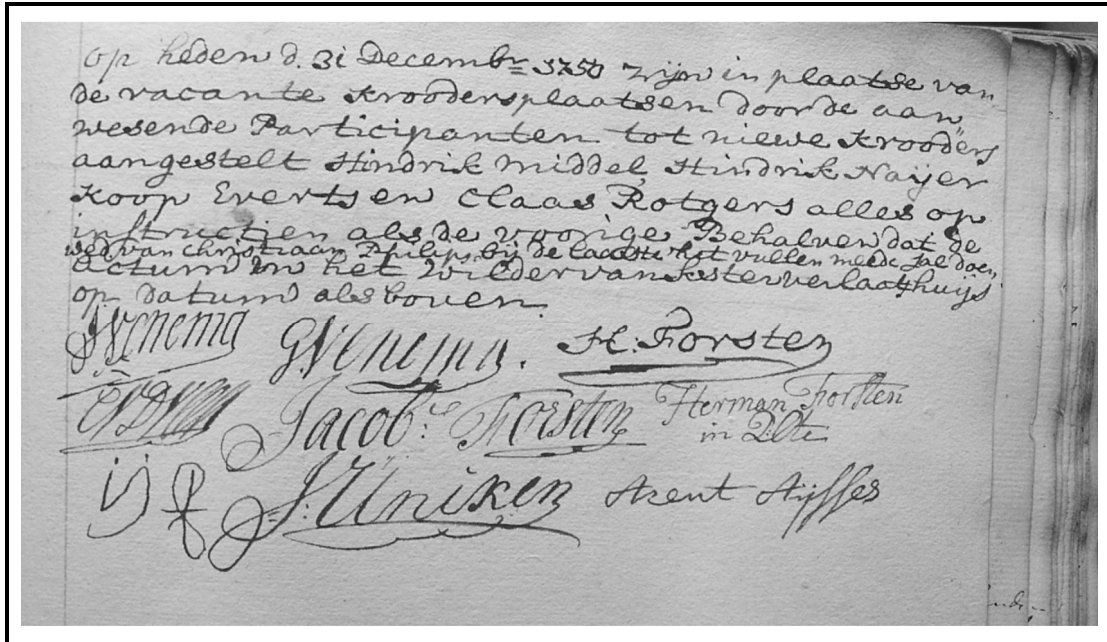 op heden d. 31 Decembr 1750 zijn in plaatse van
de vacante Kroodersplaatsen door de aan
wesende Participanten tot niewe Krooders
aangestelt Hindrik Middel, Hindrik Naijer
Koop Everts en Claas Rotgers alles op
instructien als de voorige Behalven dat de
wed. van Christiaan Philips bij de laaste het vullen meede zal doen,
actum in het Wildervanksterverlaatshuijs
op datum als boven.
J Venema G Venema. H. Forsten
Jacobus Forsten Herman Forsten
in Plte
J: Uniken Arent Aijsses